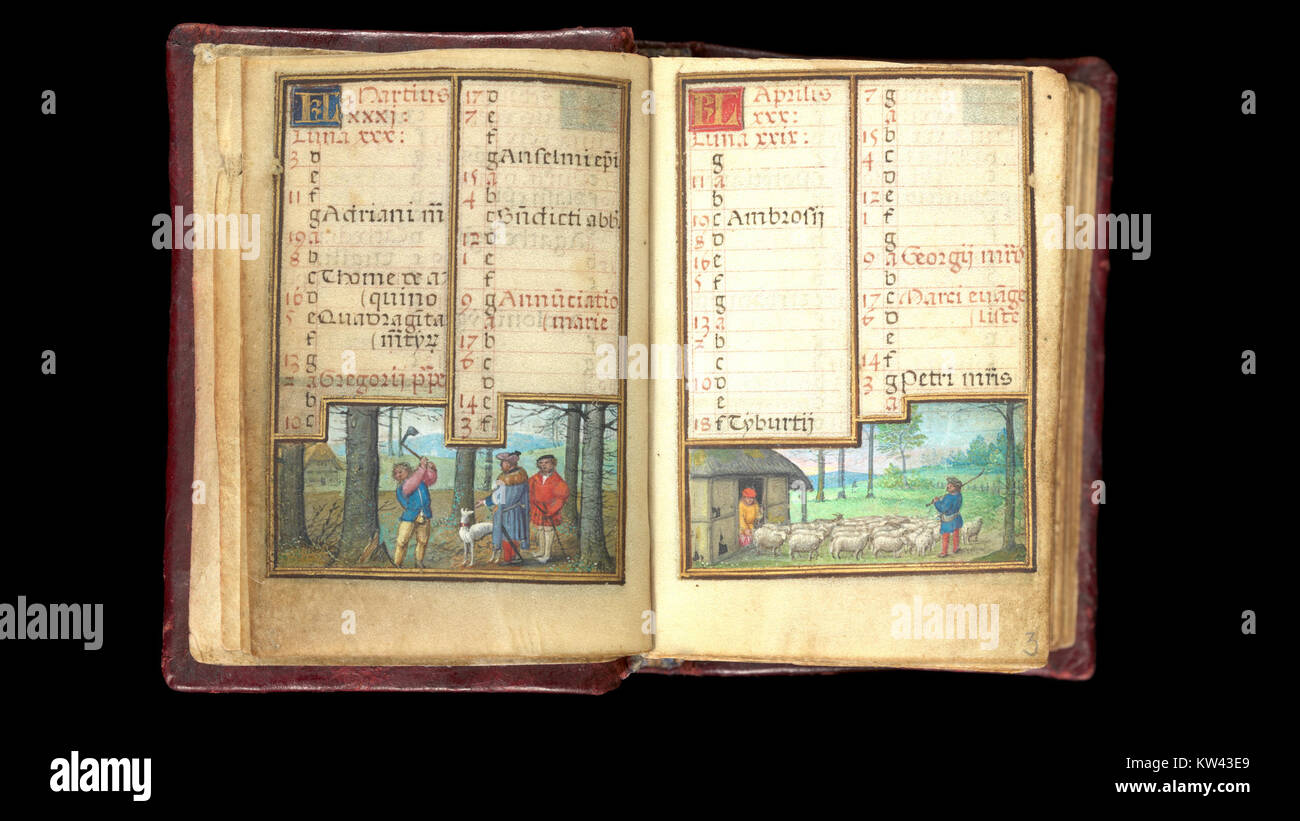 KL Martius
xxxj:
Luna xxx:
3 d
e
11 f
g Adriani m̄
19 a
8 b
c Thome de a
16 d (quino
5 e Quadragīta
f (m̄tyꝝ
13 g
2 a Gregorii p̄p̄
b
10 c
17 d
7 e
f
g Anselmi ep̄i
15 a
4 b
c Bn̄dicti abb̄
12 d
1 e
f
9 g Annūciatio
a (marie
17 b
6 c
d
14 e
3 f
KL Aprilis
xxx:
Luna xxix:
g
11 a
b
19 c Ambrosij
8 d
16 e
5 f
g
13 a
2 b
c
10 d
e
18 f Tyburtij
7 g
a
15 b
4 c
d
12 e
1 f
g
9 a Georgij m̄ris
b
17 c Marci evāge
6 d (liste
e
14 f
3 g Petri m̄ris
a
3
a
alamy
alamy stock photo
KW43E9
www.alamy.com